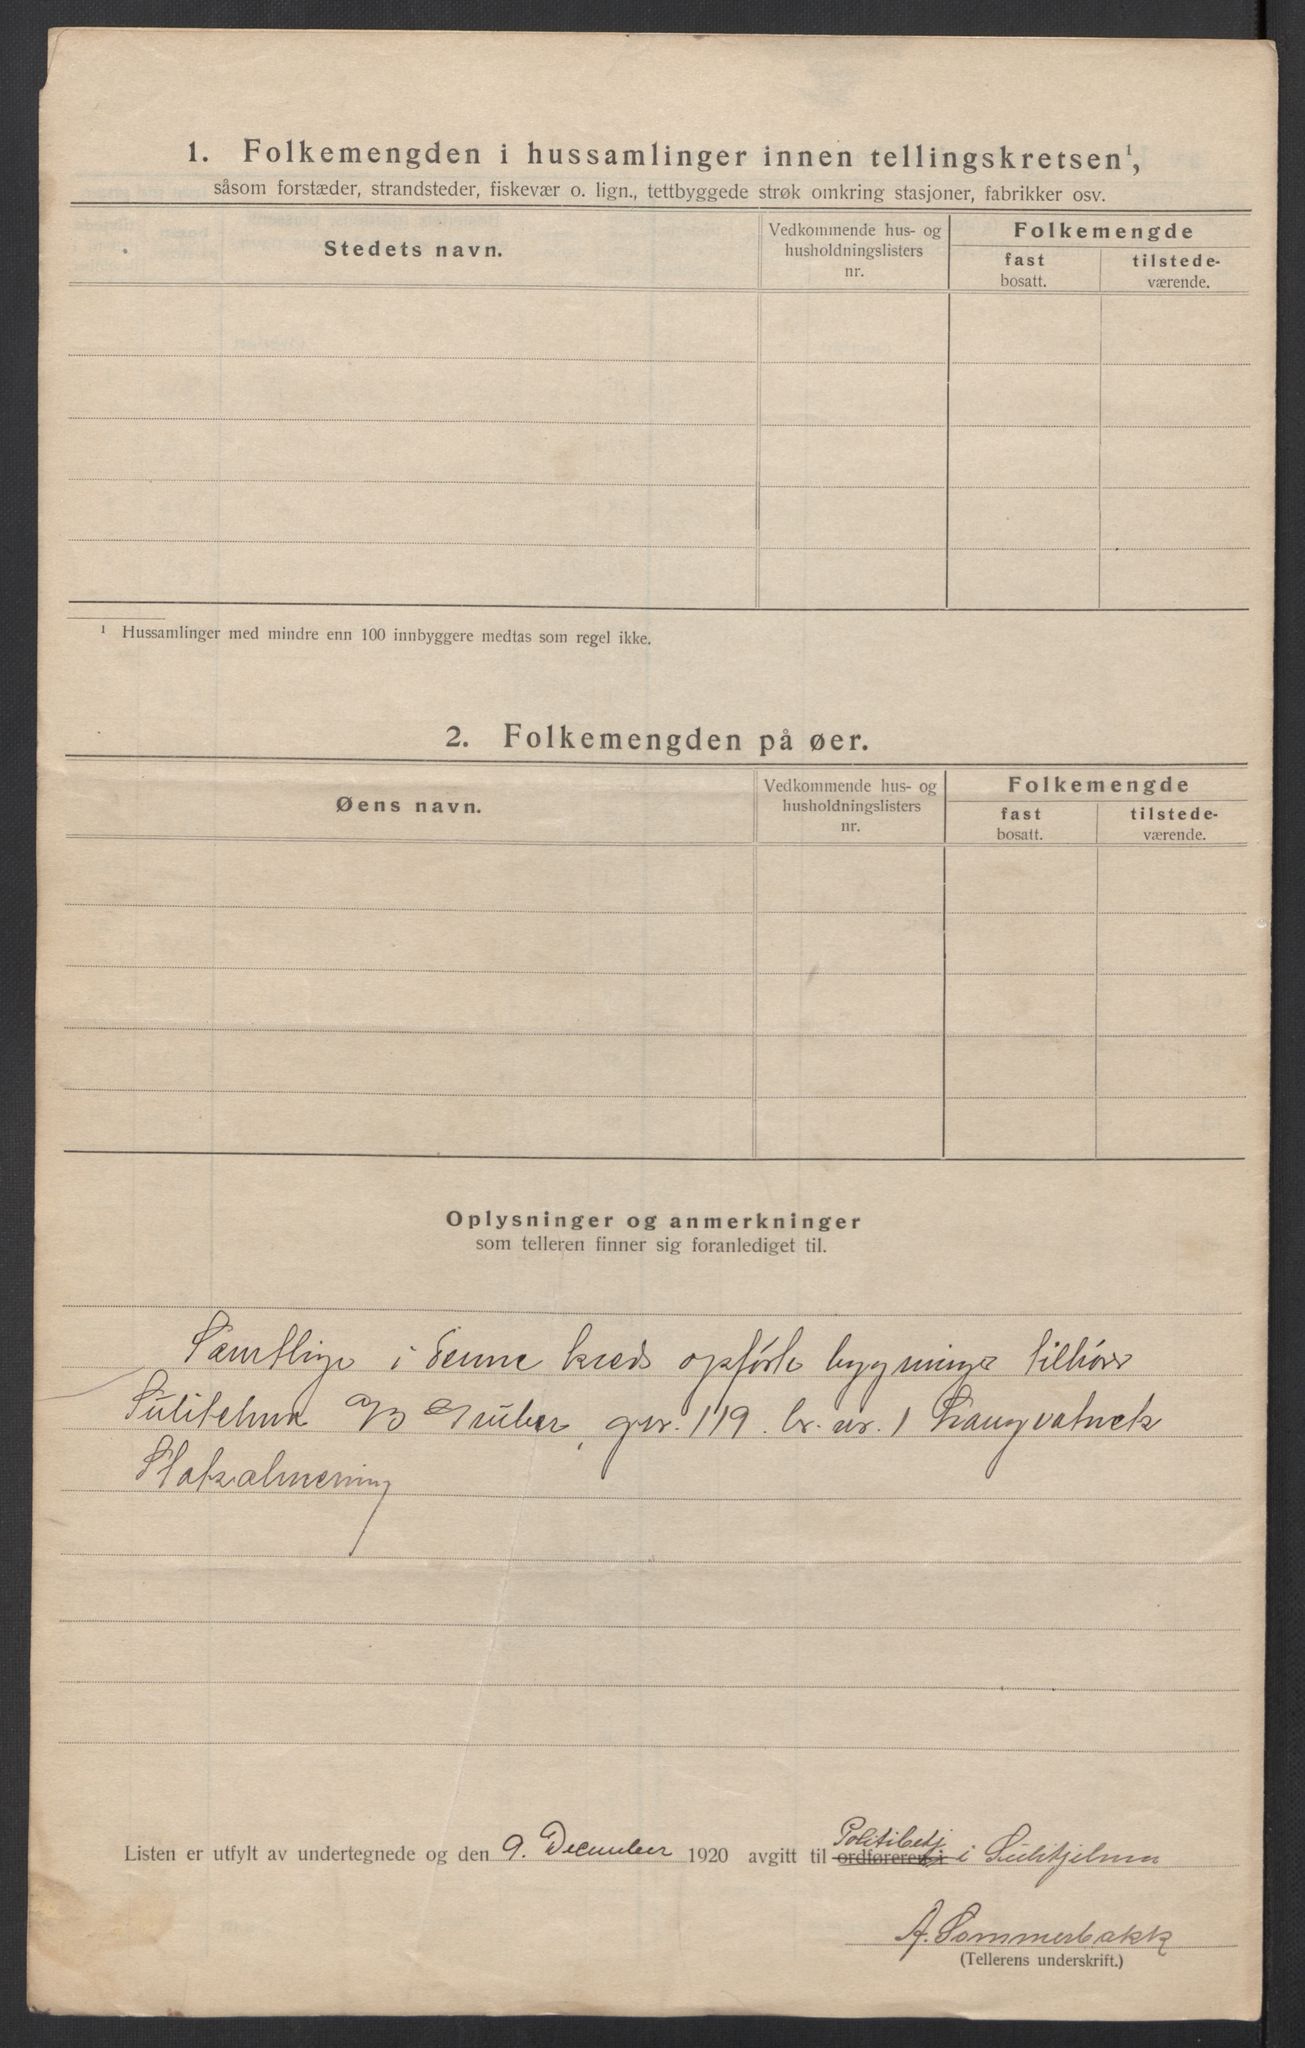 1. Folkemengden i hussamlinger innen tellingskretsen¹,
såsom forstæder, strandsteder, fiskevær o. lign., tettbyggede strøk omkring stasjoner, fabrikker osv.
Stedets navn.
Vedkommende hus- og
husholdningslisters
nr.
Folkemengde
fast
bosatt.
tilstede-
værende.
¹ Hussamlinger med mindre enn 100 innbyggere medtas som regel ikke.
2. Folkemengden på øer.
Øens navn.
Vedkommende hus- og
husholdningslisters
nr.
Folkemengde
fast
bosatt.
tilstede-
værende.
Oplysninger og anmerkninger
som telleren finner sig foranlediget til.
Samtlige i denne kreds opførte bygninger tilhører
Sulitelma A/B Gruber, gnr. 119. br. nr. 1 Langvatnets
Statsalmenning
Listen er utfylt av undertegnede og den 9. December 1920 avgitt til ordføreren i Politibetj i Sulitjelma
A. Sommerbakk
(Tellerens underskrift.)